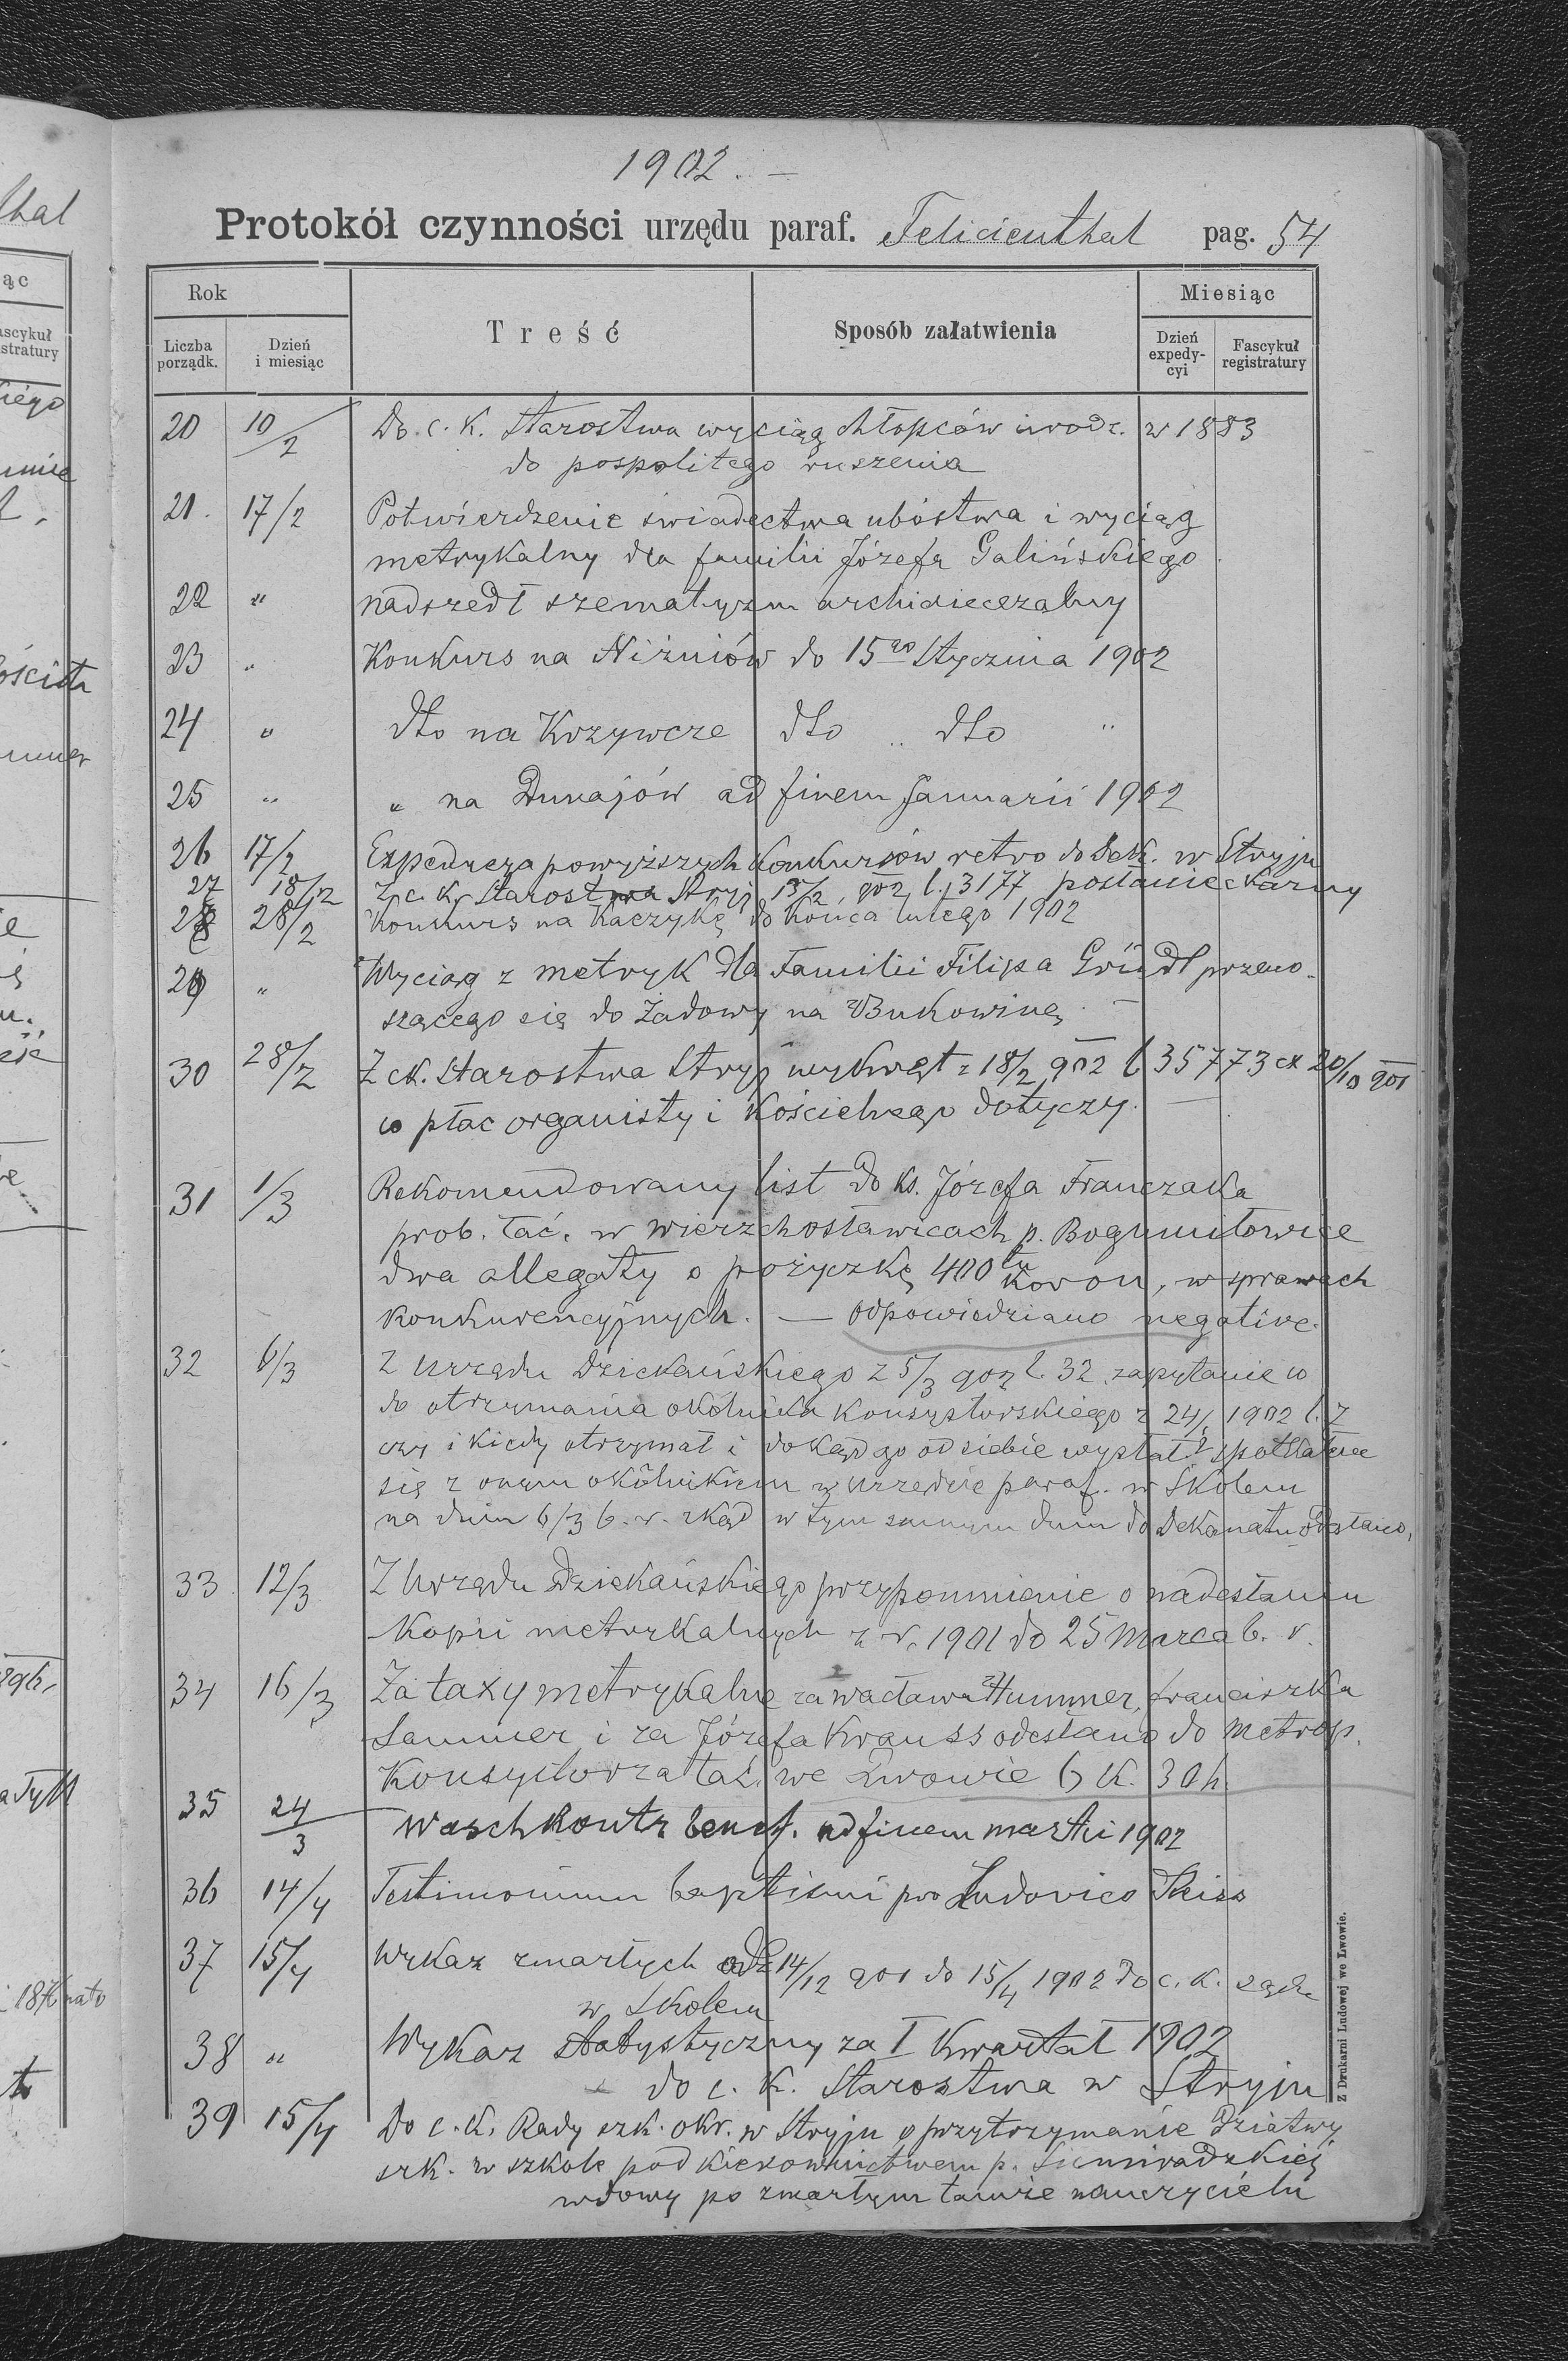 1902. —
Protokół czynności urzędu paraf. Felicienthal pag. 54
Rok
Miesiąc
Liczba porządk.
Dzień i miesiąc
Treść
Sposób załatwienia
Dzień expedy-cyi
Fascykuł registratury
20 10/2 Do c. k. Starostwa wyciąg chłopców urodz. w 1883
do pospolitego ruszenia
21. 17/2 Potwierdzenie świadectwa ubóstwa i wyciąg
metrykalny dla familii Józefa Galińskiego
22 " nadszedł szematyzm archidiecezalny
23 " Konkurs na Niżniów do 15go Stycznia 1902
24 " dto na Krzywcze dto " dto "
25 " " na Dunajów ad finem Januarii 1902
26 17/2 Expedycya powyższych konkursów retro do Dek. w Stryju
27 18/2 Z c. k. Starostwa Stryj 15/2 902 l. 3177 postanie karny
28 28/2 Konkurs na Kaczykę do końca lutego 1902
29 " Wyciąg z metryk dla Familii Filipa Gründl przeno-
szącego się do Żadowy na Bukowinę. —
30 28/2 Z ck. Starostwa Stryj z 18/2 902 l 35773 ex 20/10 901
co płac organisty i kościelnego dotyczy. —
31 1/3 Rekomendowany list do ks. Józefa Franczaka
prob. łać. w Wierzchosławicach p. Bogumiłowice
dwa allegaty o pożyczkę 400 tu koron, w sprawach
konkurencyjnych. — odpowiedziano negative.
32 6/3 Z Urzędu Dziekańskiego z 5/3 902 l. 32 zapytanie co
do otrzymania okólnika konsystorskiego z 24/1 1902 l. 7
czy i kiedy otrzymał i dokąd go od siebie wysłał?
się z onym okólnikiem w urzędzie paraf. w Skolem
na dniu 6/3 b. r. zkąd w tym samym dniu do Dekanatu
33 12/3 Z Urzędu Dziekańskiego przypomnienie o nadesłaniu
kopii metrykalnych z r. 1901 do 25 Marca b. r.
34 16/3 Za taxy metrykalne za Wacława Hummer, Franciszka
Lammer i za Józefa Krauss odesłano do Metrop.
Konsystorza łać. we Lwowie 6 K. 30 h.
35 24/3 benef. ad finem martii 1902
36 14/4 Testimonium baptismi pro Ludovico
37 15/4 Wykaz zmarłych od 14/12 901 do 15/4 1902 do c. k. sądu
w Skolem
38 " Wykaz statystyczny za I Kwartał 1902
do c. k. Starostwa w Stryju
39 15/4 Do c. k. Rady szk. okr. w Stryju o przytrzymanie dziatwy
szk. w szkole pod kierownictwem p.
wdowy po zmarłym tamże nauczycielu
Z Drukarni Ludowej we Lwowie.